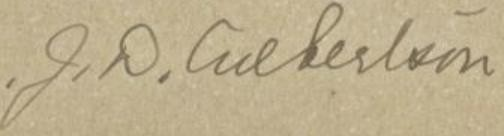 J. D. Culbertson